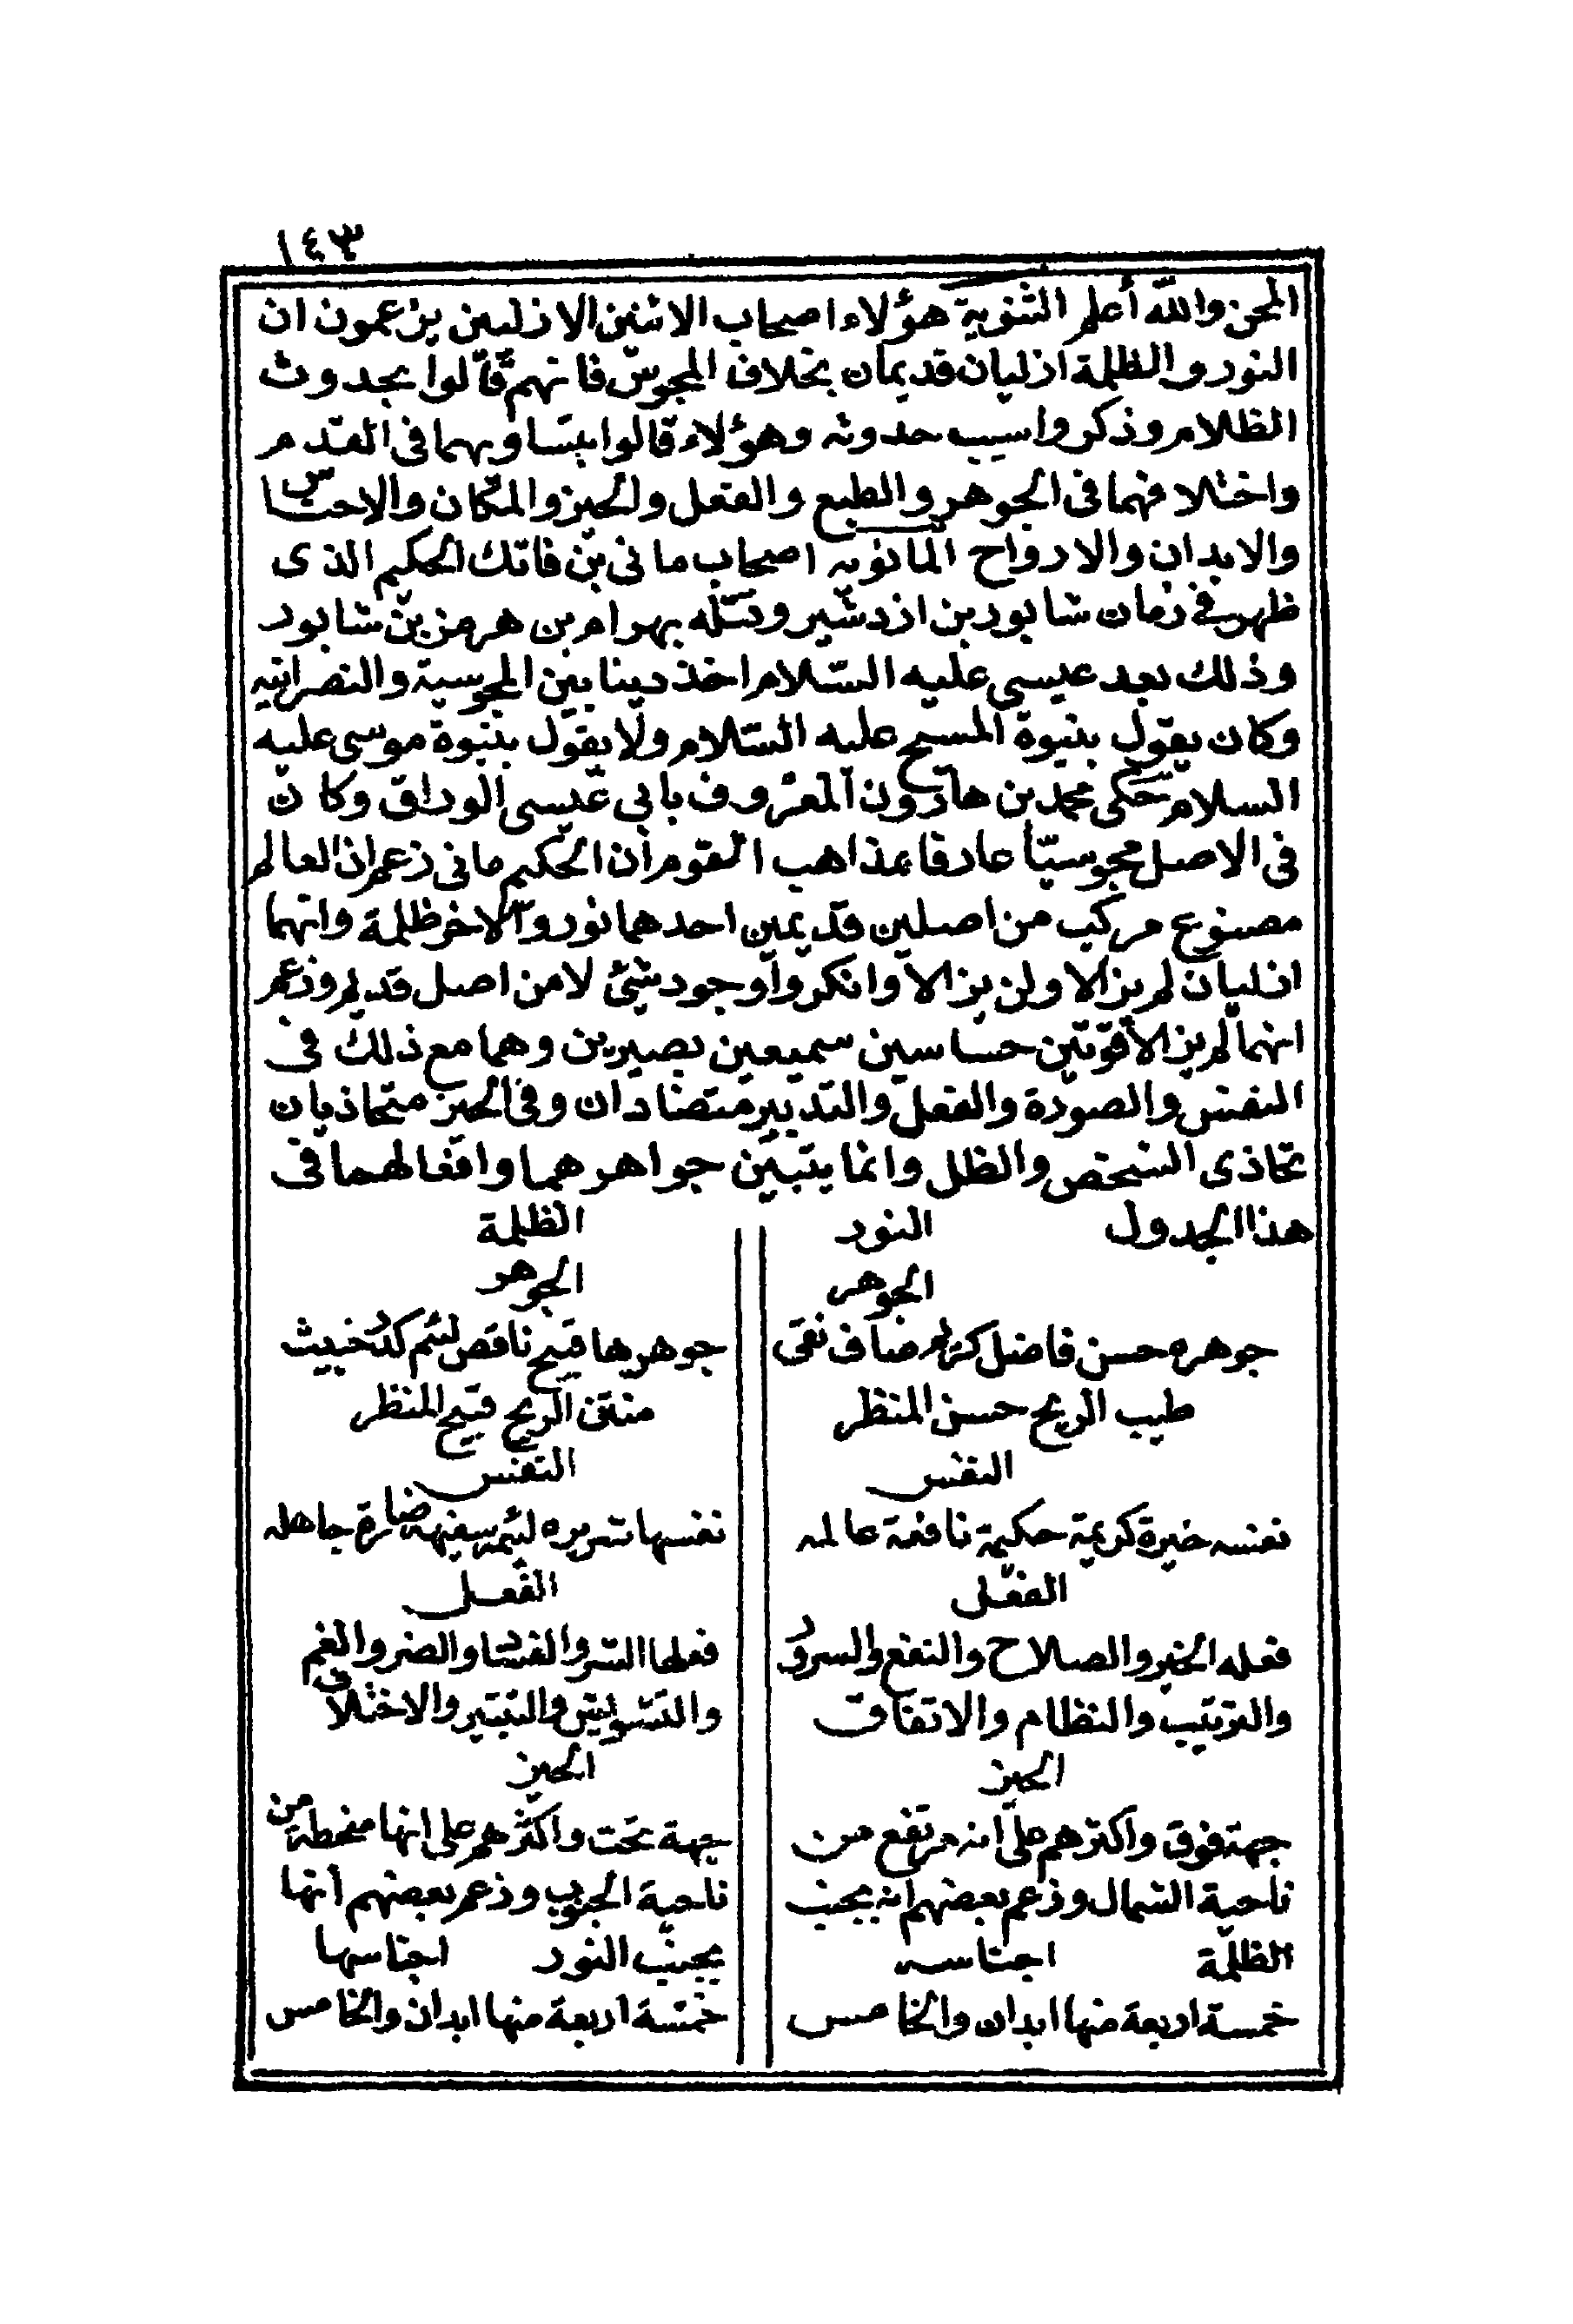 ١٤٣
المحن والله أعلم الثنوية هؤلاء اصحاب الاثنين الازليين يزعمون ان
النور والظلمة ازليان قديمان بخلاف المجوس فانهم قالوا بحدوث
الظلام وذكروا سبب حدوثه وهؤلاء قالوا بتساويهما في القدم
واختلافهما في الجوهر والطبع والفعل والحيز والمكان والاجناس
والابدان والارواح المانويه اصحاب مانى بن فاتك الحكيم الذى
ظهر في زمان شابور بن ازدشير وقتله بهرام بن هرمز بن شابور
وذلك بعد عيسى عليه السلام اخذ دينا بين المجوسية والنصرانيه
وكان يقول بنبوة المسيح عليه السلام ولا يقول بنبوة موسى عليه
السلام حكى محمد بن هارون المعروف بابى عيسى الوراق وكان
فى الاصل مجوسيّا عارفا بمذاهب القوم ان الحكيم مانى زعم ان العالم
مصنوع مركب من اصلين قديمين احدهما نور والآخر ظلمة وانهما
ازليان لم يزالا ولن يزالا وانكروا وجود شئ لا من اصل قديم وزعم
انهما لم يزالا قوتين حساسين سميعين بصيرين وهما مع ذلك في
النفس والصورة والفعل والتدبير متضادان وفى الحيز متحاذيان
تحاذى الشخص والظل وانما يتبين جواهرهما وافعالهما في
هذا الجدول النور الظلمة
الجوهر الجوهر
جوهره حسن فاضل كريم صاف نقى جوهرها قبيح ناقص لئيم كدر خبيث
طيب الريح حسن المنظر منتن الريح قبيح المنظر
النفس النفس
نفسه خيرة كريمة حكيمة نافعة عالمه نفسها شريره لئيمه سفيهه ضارة جاهله
الفعل الفعل
فعله الخير والصلاح والنفع والسرور فعلها الشر والفساد والضر والغم
والترتيب والنظام والاتفاق والتشويش والتبتير والاختلاف
الحيز الحيز
جهة فوق واكثرهم على انه مرتفع من جهة تحت واكثرهم على انها منحطة من
ناحية الشمال وزعم بعضهم انه بجنب ناحية الجنوب وزعم بعضهم انها
الظلمة اجناسه بجنب النور اجناسها
خمسة اربعة منها ابدان والخامس خمسة اربعة منها ابدان والخامس